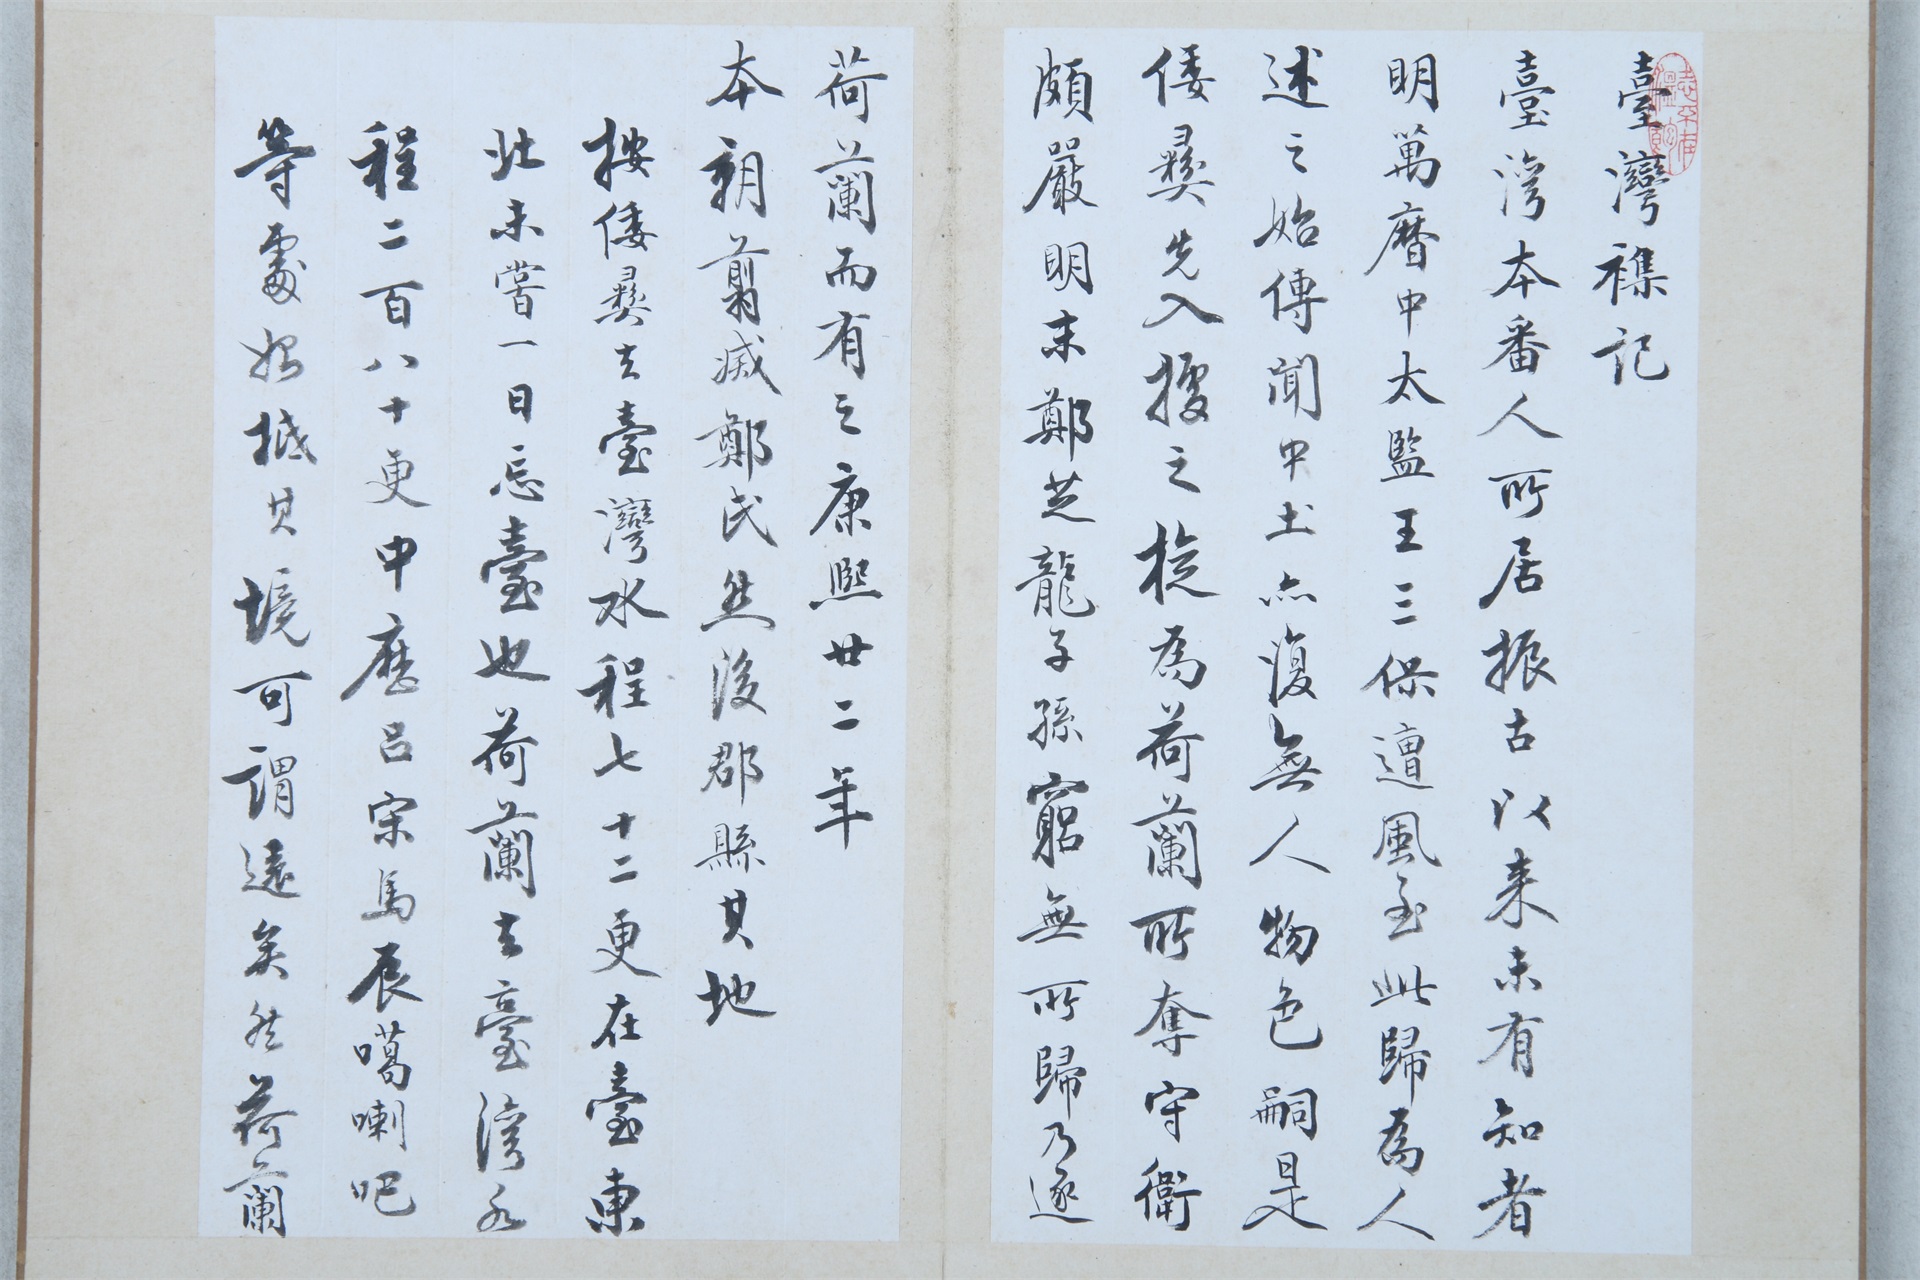 臺灣襍記
臺灣本番人所居振古以来未有知者
明萬曆中太監王三保遭風至此歸為人
述之始傳聞中土亦復無人物色嗣是
倭彝先入據之旋為荷蘭所奪守衛
頗嚴明末鄭芝龍子孫窮無所歸乃逐
荷蘭而有之康熙廿二年
本朝翦滅鄭氏然後郡縣其地
按倭彝去臺灣水程七十二更在臺東
北未嘗一日忘臺也荷蘭去臺灣水
程二百八十更中歷呂宋馬辰噶喇吧
等處始抵其境可謂遠矣然荷蘭